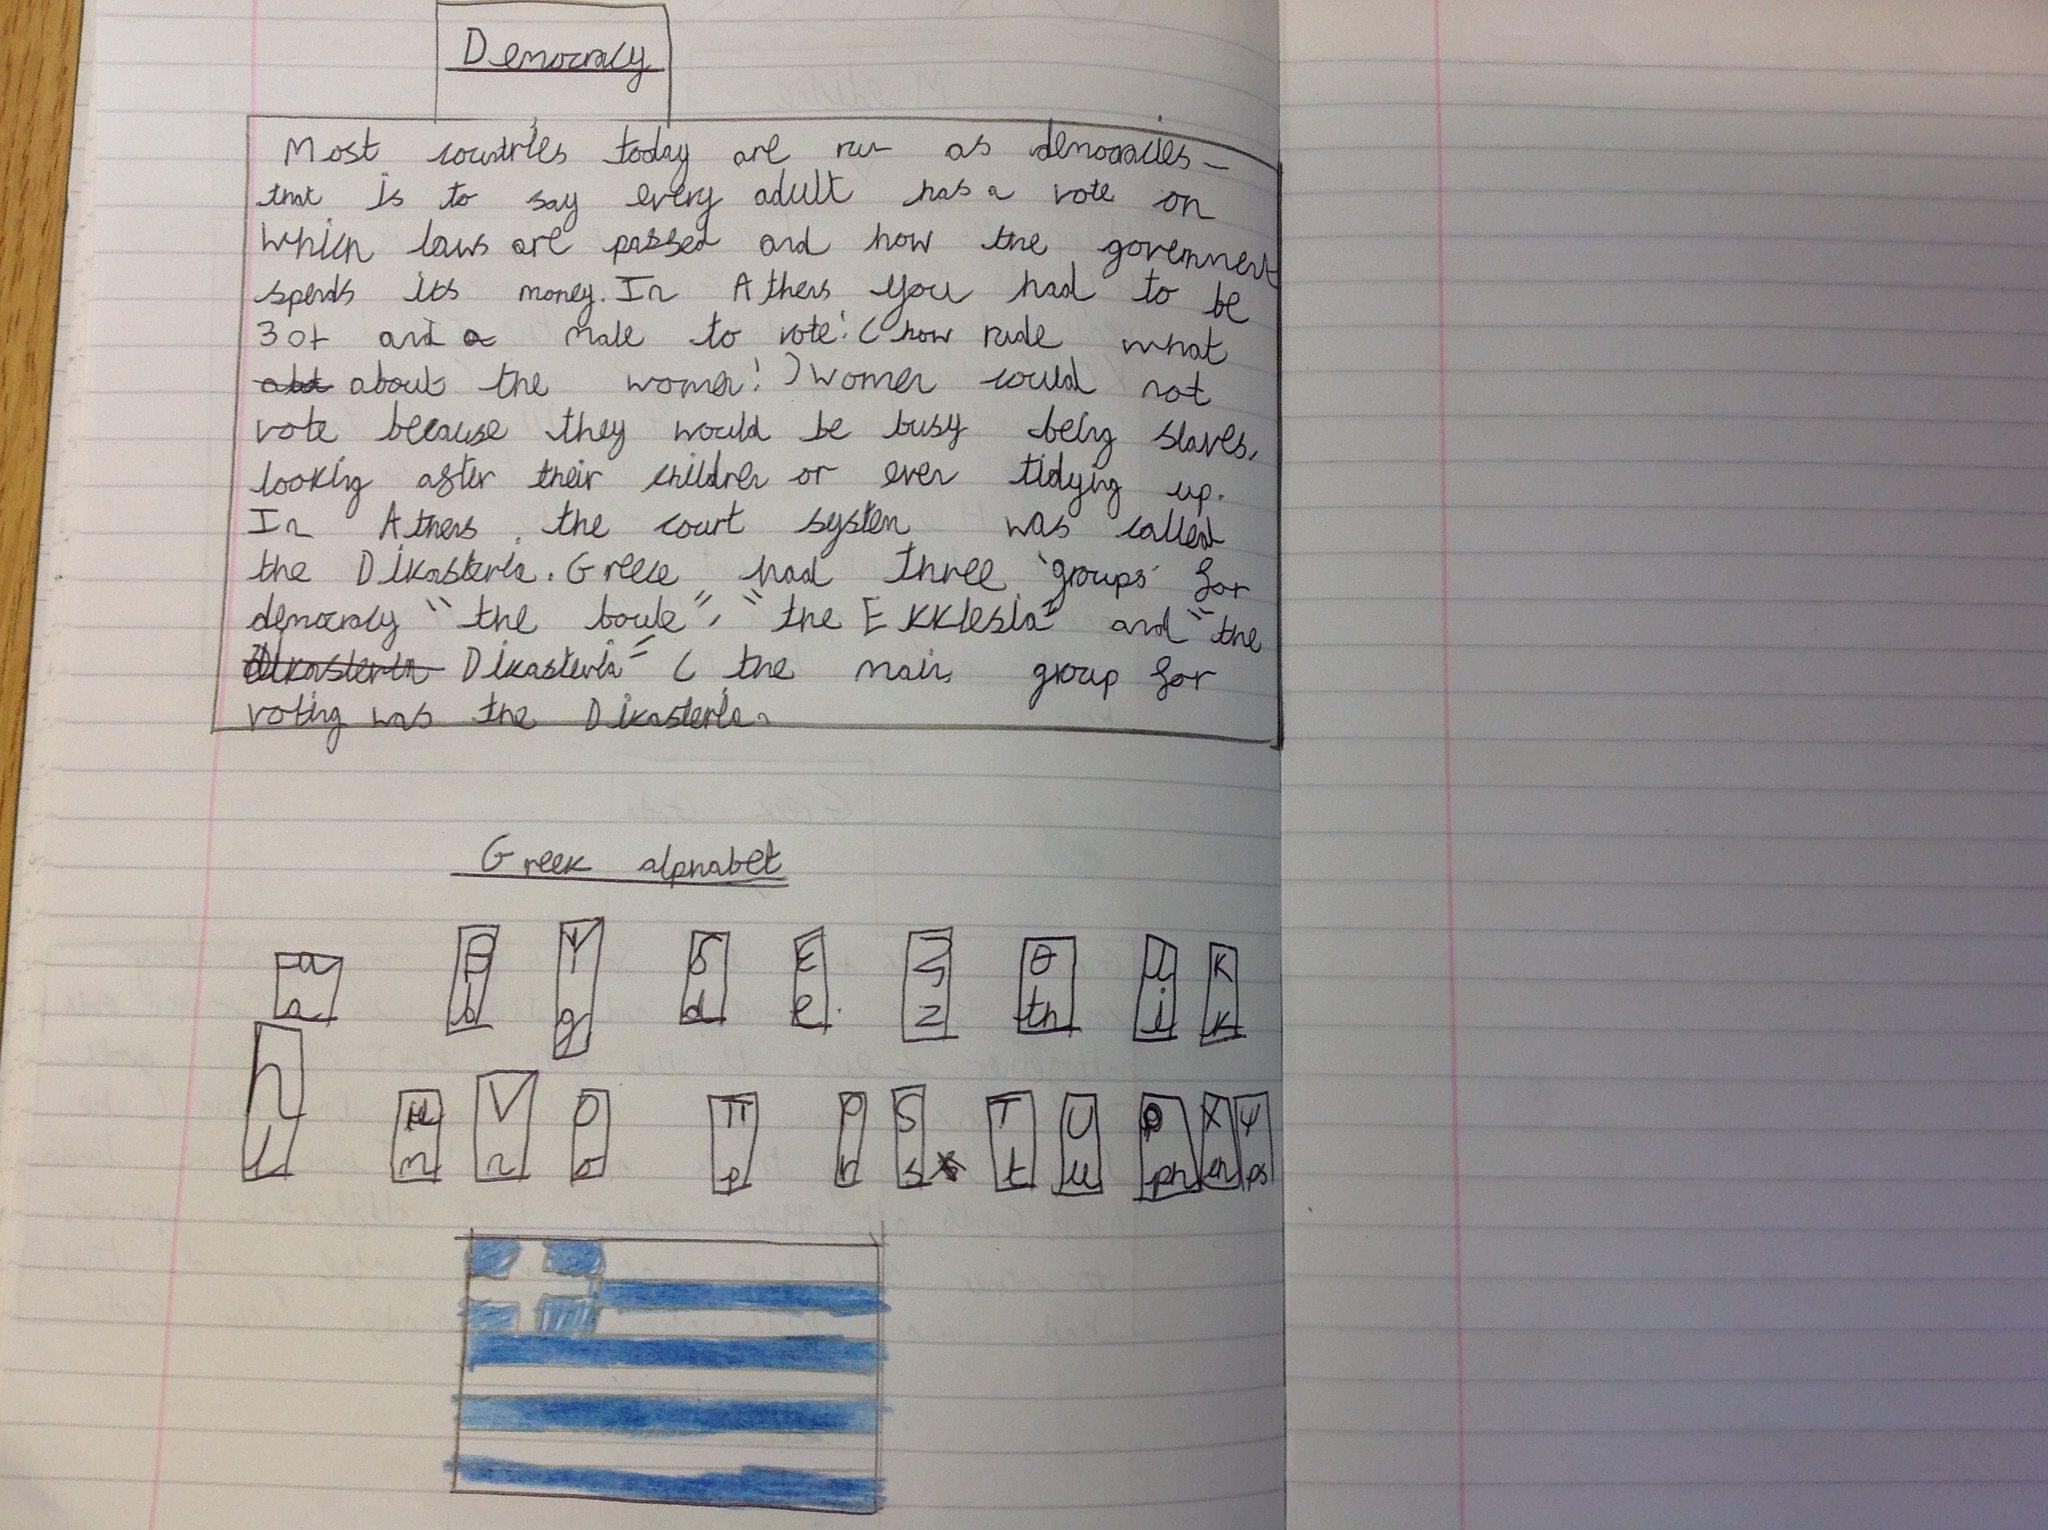 Democracy
Most countries today are run as democracies -
that is to say every adult has a vote on
which laws are passed and how the government
spends its money. In Athens you had to be
30+ and a male to vote! (how rude what
about the women!) Women could not
vote because they would be busy being slaves,
looking after their children or even tidying up.
In Athens, the court system was called
the Dikasteria. Greece had three 'groups' for
democracy "the boule", "the Ekklesia" and "the
Dikasteria" (the main group for
voting was the Dikasteria.
Greek alphabet
α β γ δ ε ζ θ ι κ
a b g d e z th i k
λ μ ν ο π ρ S τ υ φ χ ψ
l m n o p r s t u ph ch ps